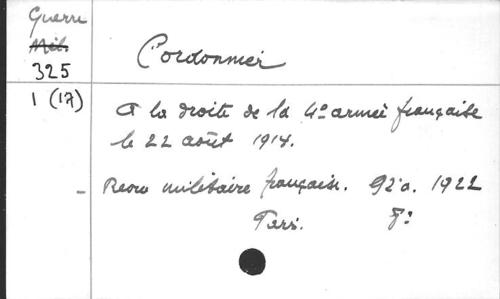 Guerre
Mil.
325
Cordonnier
1 (17)
A la droite de la 4e armée française
le 22 août 1914.
- Revue militaire française. 92e a. 1922
Paris. 8°